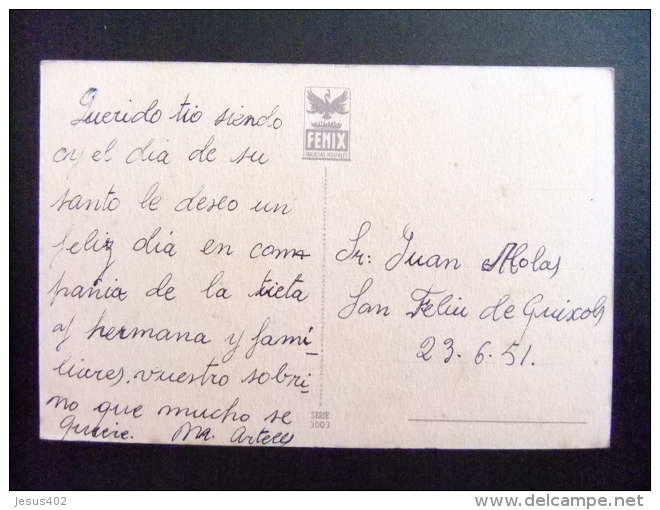 Querido tio siendo
oy el dia de su
santo le deseo un
feliz dia en com-
pañia de la tieta
y hermana y fami-
liares, vuestro sobri-
no que mucho se
quiere. Ma. Artells
FENIX
TARJETAS POSTALES
SERIE
3003
Sr: Juan Molas
San Feliu de Guixols
23.6.51.
Jesus402
www.delcampe.net